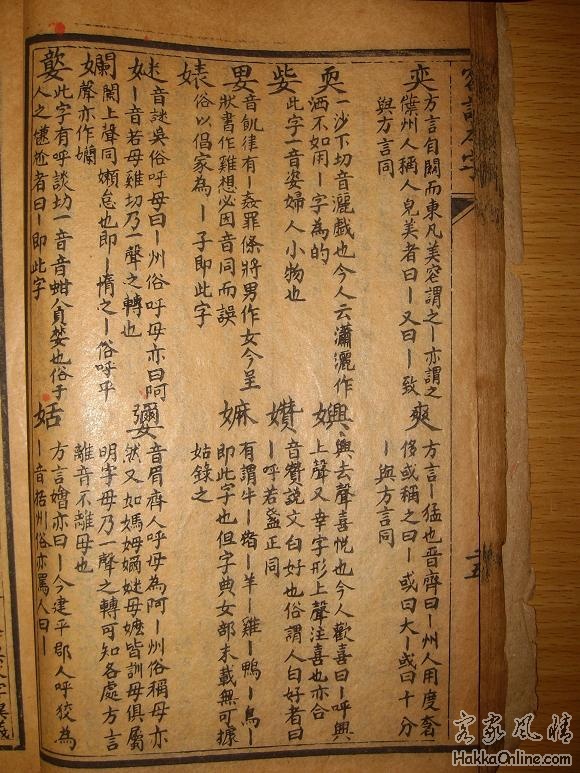 客話本字
奕
方言自關而東凡美容謂之丨亦謂之
僷州人稱人皃美者曰丨又曰丨致
與方言同
爽
方言丨猛也晉齊曰丨州人用度奢
侈或稱之曰丨或曰大丨或曰十分
丨與方言同
耍
一沙下切音灑戲也今人云瀟灑作
洒不如用丨字為的
嬹
興去聲喜悅也今人歡喜曰丨呼興
上聲又字形上聲注喜也亦合
姕
此字一音姿婦人小物也
音贊說文白好也俗謂人白好者曰
丨呼若盞正同
音飢律有丨姦罪條將男作女今呈
狀書作雞想必因音同而誤
嫲
有謂牛丨豬丨羊丨雞丨鴨丨鳥丨
即此字也但字典女部未載無可據
姑錄之
婊
俗以倡家為丨子即此字
音謎吳俗呼母曰丨州俗呼母亦曰阿
丨音若母雞切乃一聲之轉也
孏
闌上聲同嬾怠也即丨惰之丨俗呼平
聲亦作
此字有呼談切一音音蚶貪婪也俗于
人之尷尬者曰丨即此字
音眉齊人呼母為阿丨州俗稱母亦
然又如媽姆嬭母嬤皆訓母俱屬
明字母乃一聲之轉可知各處方言
離音不離母也
姡
方言獪亦曰丨今建平郡人呼狡為
丨音括州俗亦罵人曰丨
客家風情
HakkaOnline.com